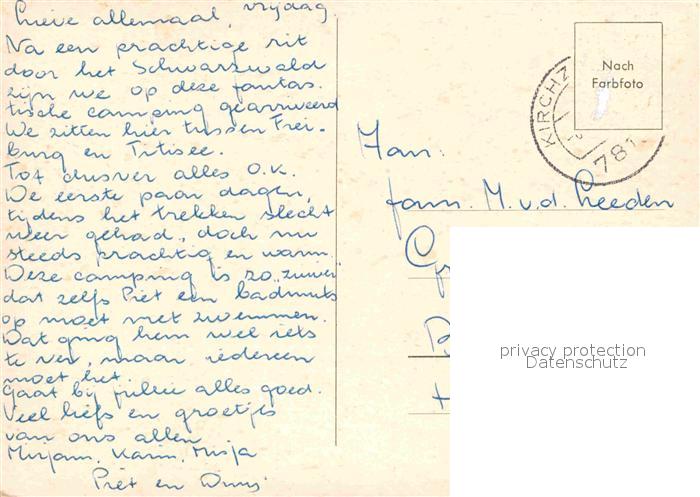 Lieve allemaal, vrijdag.
Na een prachtige rit
door het Schwarzwald
zijn we op deze fantas.
tische camping gearriveerd
We zitten hier tussen Frei-
burg en Titisee.
Tot dusver alles O.K.
De eerste paar dagen,
tijdens het trekken slecht
weer gehad, doch nu
steeds prachtig en warm.
Deze camping is zo "zuiver"
dat zelfs Piet een badmuts
op moet met zwemmen.
Dat ging hem wel iets
te ver, maar iedereen
moet het.
Gaat bij jullie alles goed.
Veel liefs en groetjes
van ons allen
Mirjam, Karin, Misja
Piet en
Nach
Farbfoto
KIRCHZ
781
Aan:
fam. M. v.d. Leeden
privacy protection
Datenschutz